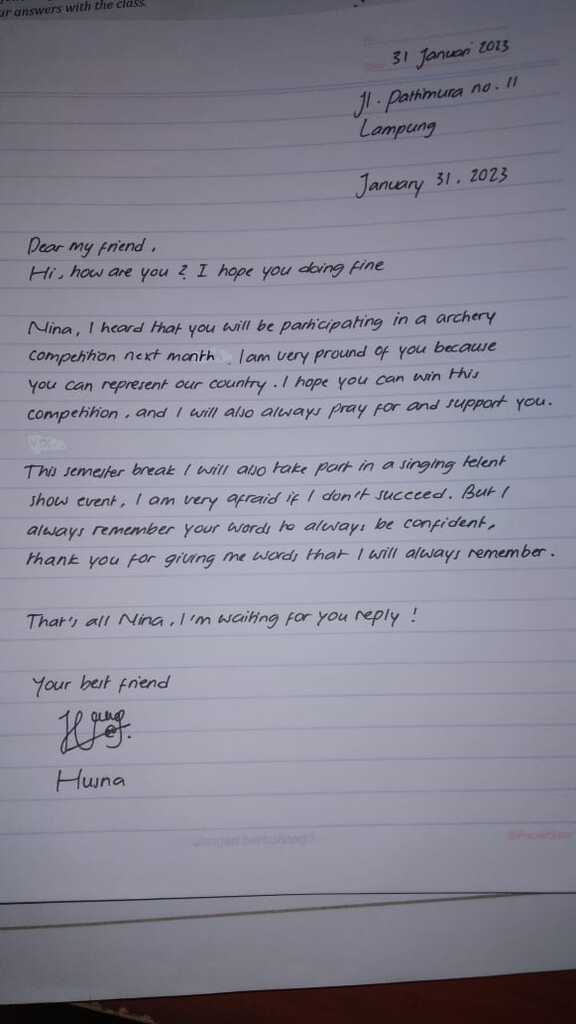 ur answers with the class.
31 Januari 2023
Jl. Pattimura no. 11
Lampung
January 31, 2023
Dear my friend,
Hi, how are you? I hope you doing fine
Nina, I heard that you will be participating in a archery
competition next month. I am very pround of you because
you can represent our country. I hope you can win this
competition, and I will also always pray for and support you.
This semester break I will also take part in a singing telent
show event, I am very afraid if I don't succeed. But I
always remember your words to always be confident,
thank you for giving me words that I will always remember.
That's all Nina, I'm waiting for you reply!
Your best friend
Husna